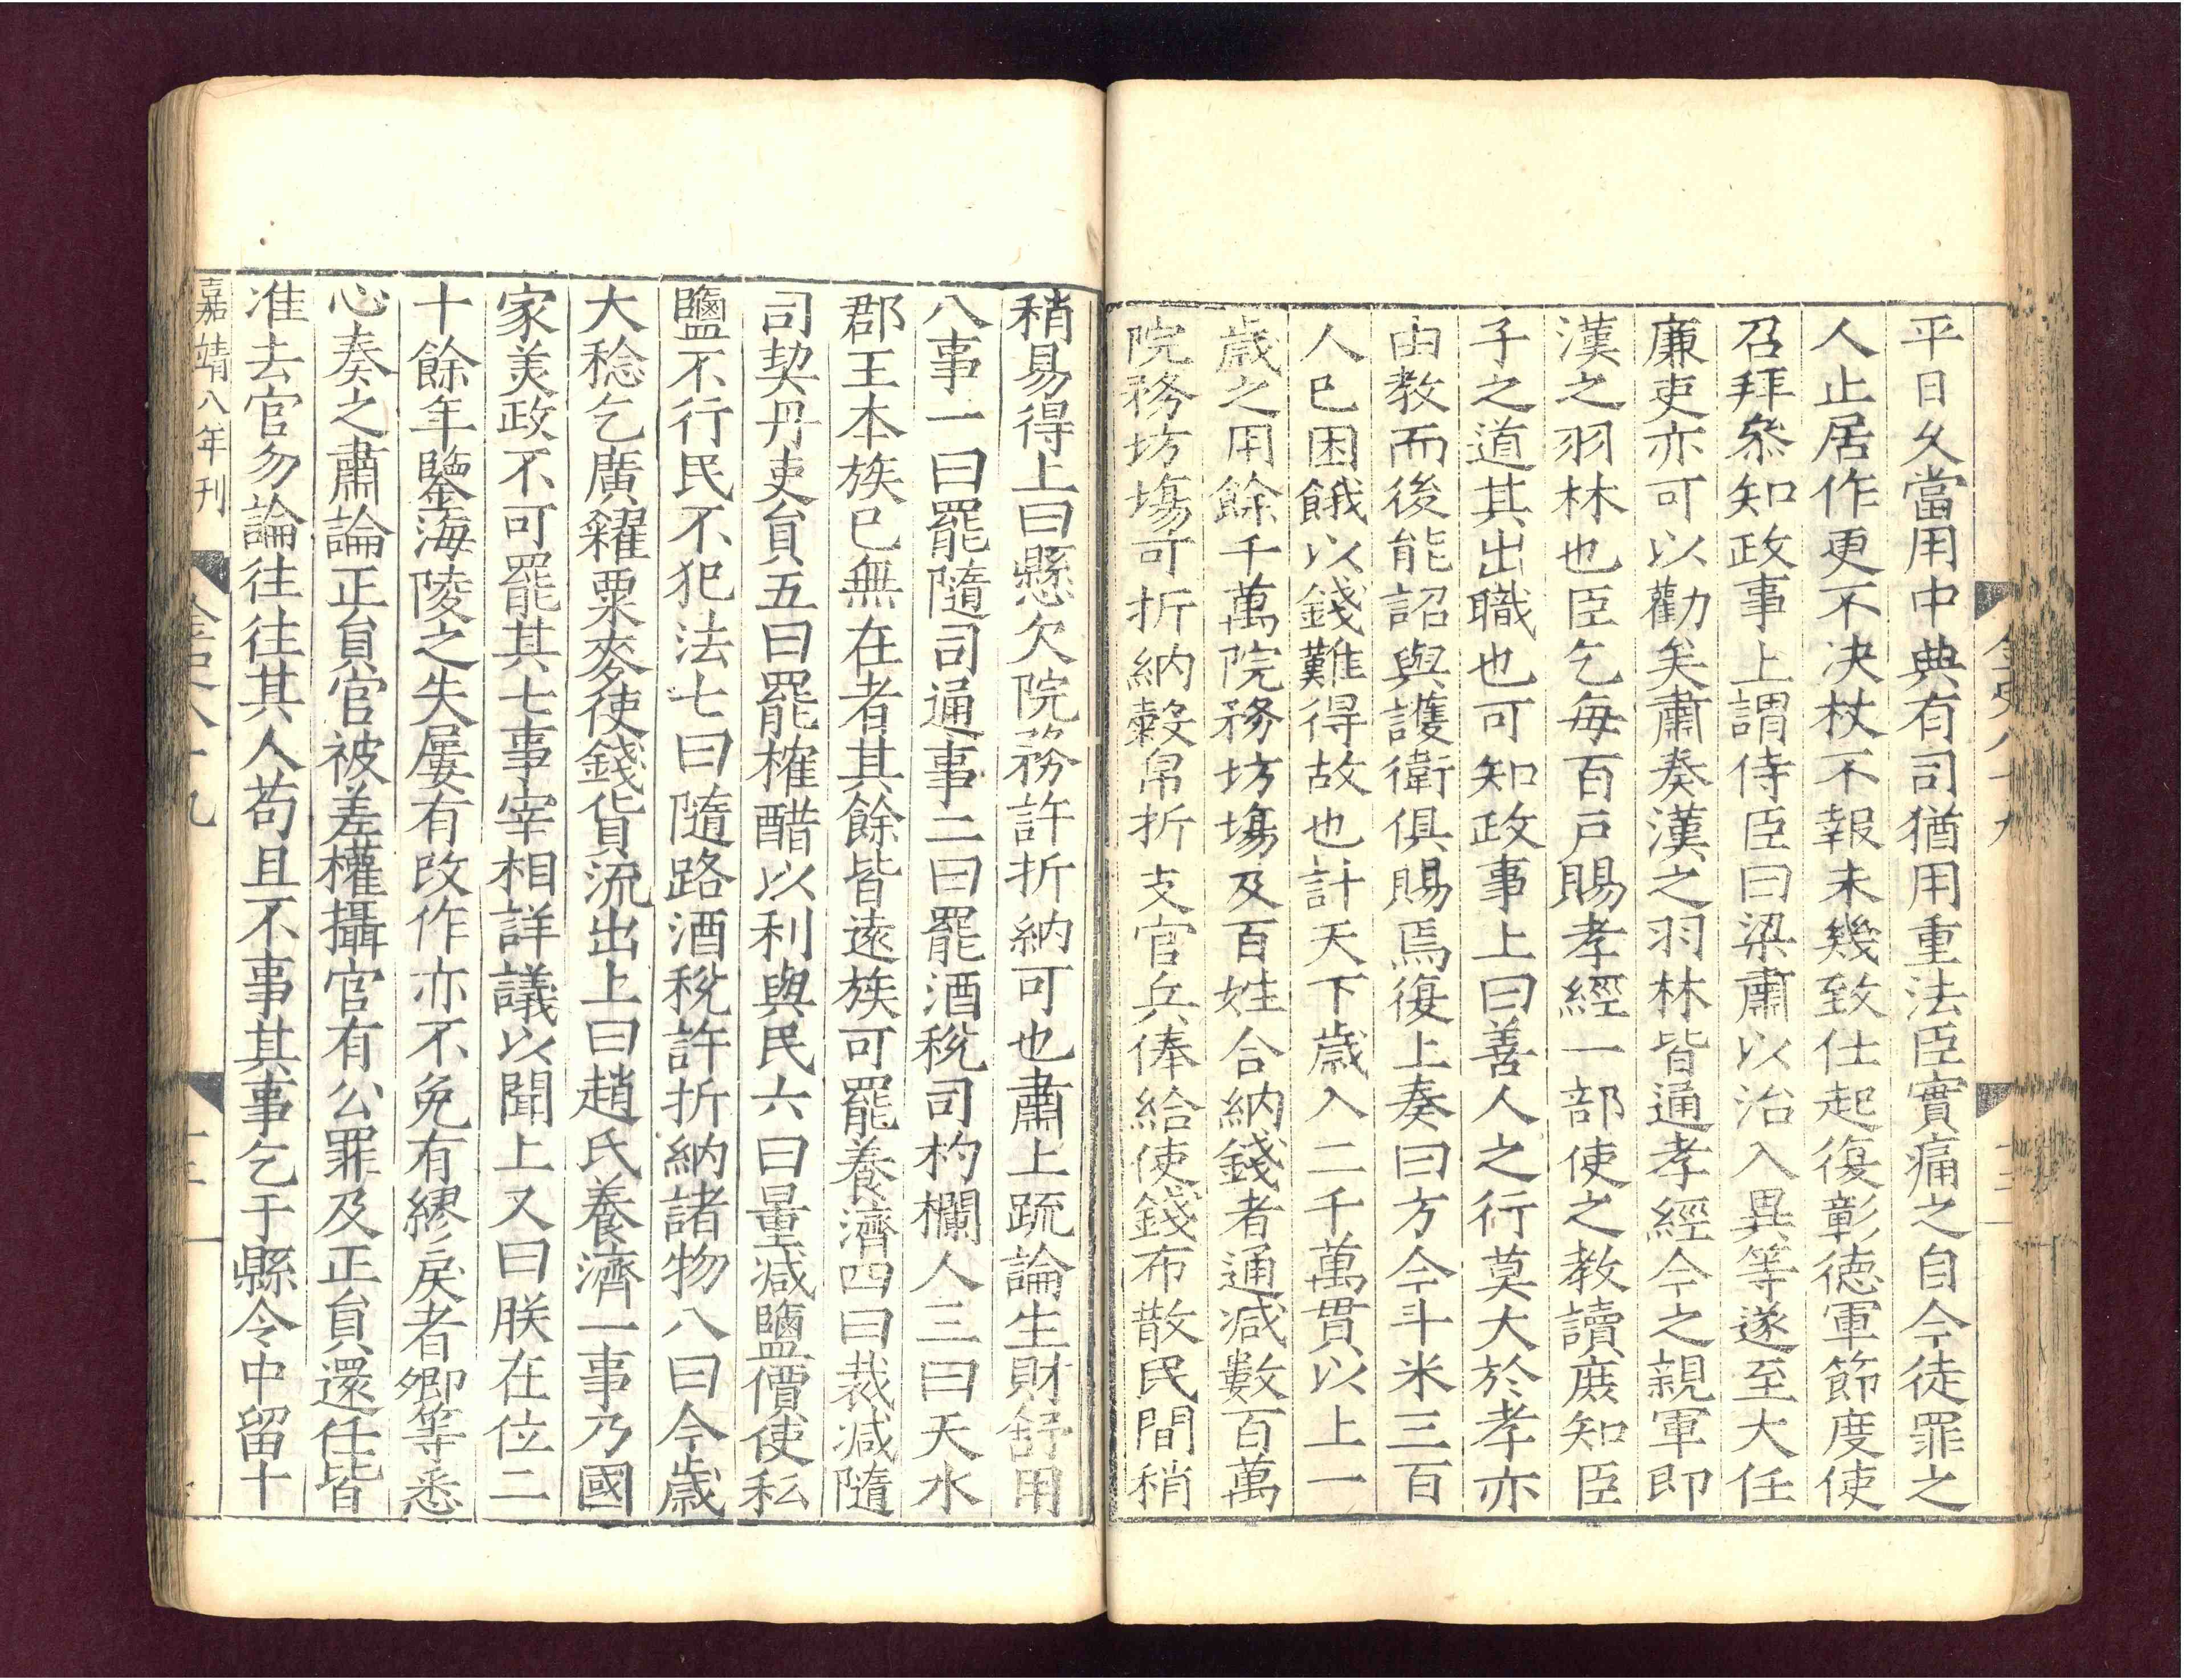 平日久當用中典有司猶用重法臣實痛之自今徒罪之
人止居作更不决杖不報未幾致仕起復彰德軍節度使
召拜叅知政事上謂侍臣曰梁肅以治入異等遂至大任
廉吏亦可以勸矣肅奏漢之羽林皆通孝經今之親軍即
漢之羽林也臣乞每百戸賜孝經一部使之教讀庻知臣
子之道其出職也可知政事上曰善人之行莫大於孝亦
由教而後能詔與護衛俱賜焉復上奏曰方今斗米三百
人巳困餓以錢難得故也計天下歳入二千萬貫以上一
歳之用餘千萬院務坊塲及百姓合納錢者通减數百萬
院務坊塲可折納糓帛折支官兵俸給使錢布散民間稍
稍易得上曰懸欠院務許折納可也肅上疏論生財舒用
八事一曰罷隨司通事二曰罷酒稅司杓欄人三曰天水
郡王本族巳無在者其餘皆遠族可罷養濟四曰裁减隨
司契丹吏貟五曰罷榷醋以利與民六曰量减鹽價使私
鹽不行民不犯法七曰隨路酒稅許折納諸物八曰今歳
大稔乞廣糴粟麥使錢貨流出上曰趙氏養濟一事乃國
家美政不可罷其七事宰相詳議以聞上又曰朕在位二
十餘年鑒海陵之失屢有改作亦不免有繆戾者卿等悉
心奏之肅論正貟官被差權攝官有公罪及正貟還任皆
准去官勿論往往其人苟且不事其事乞于縣令中留十
嘉靖八年刊
金史八十九
十三